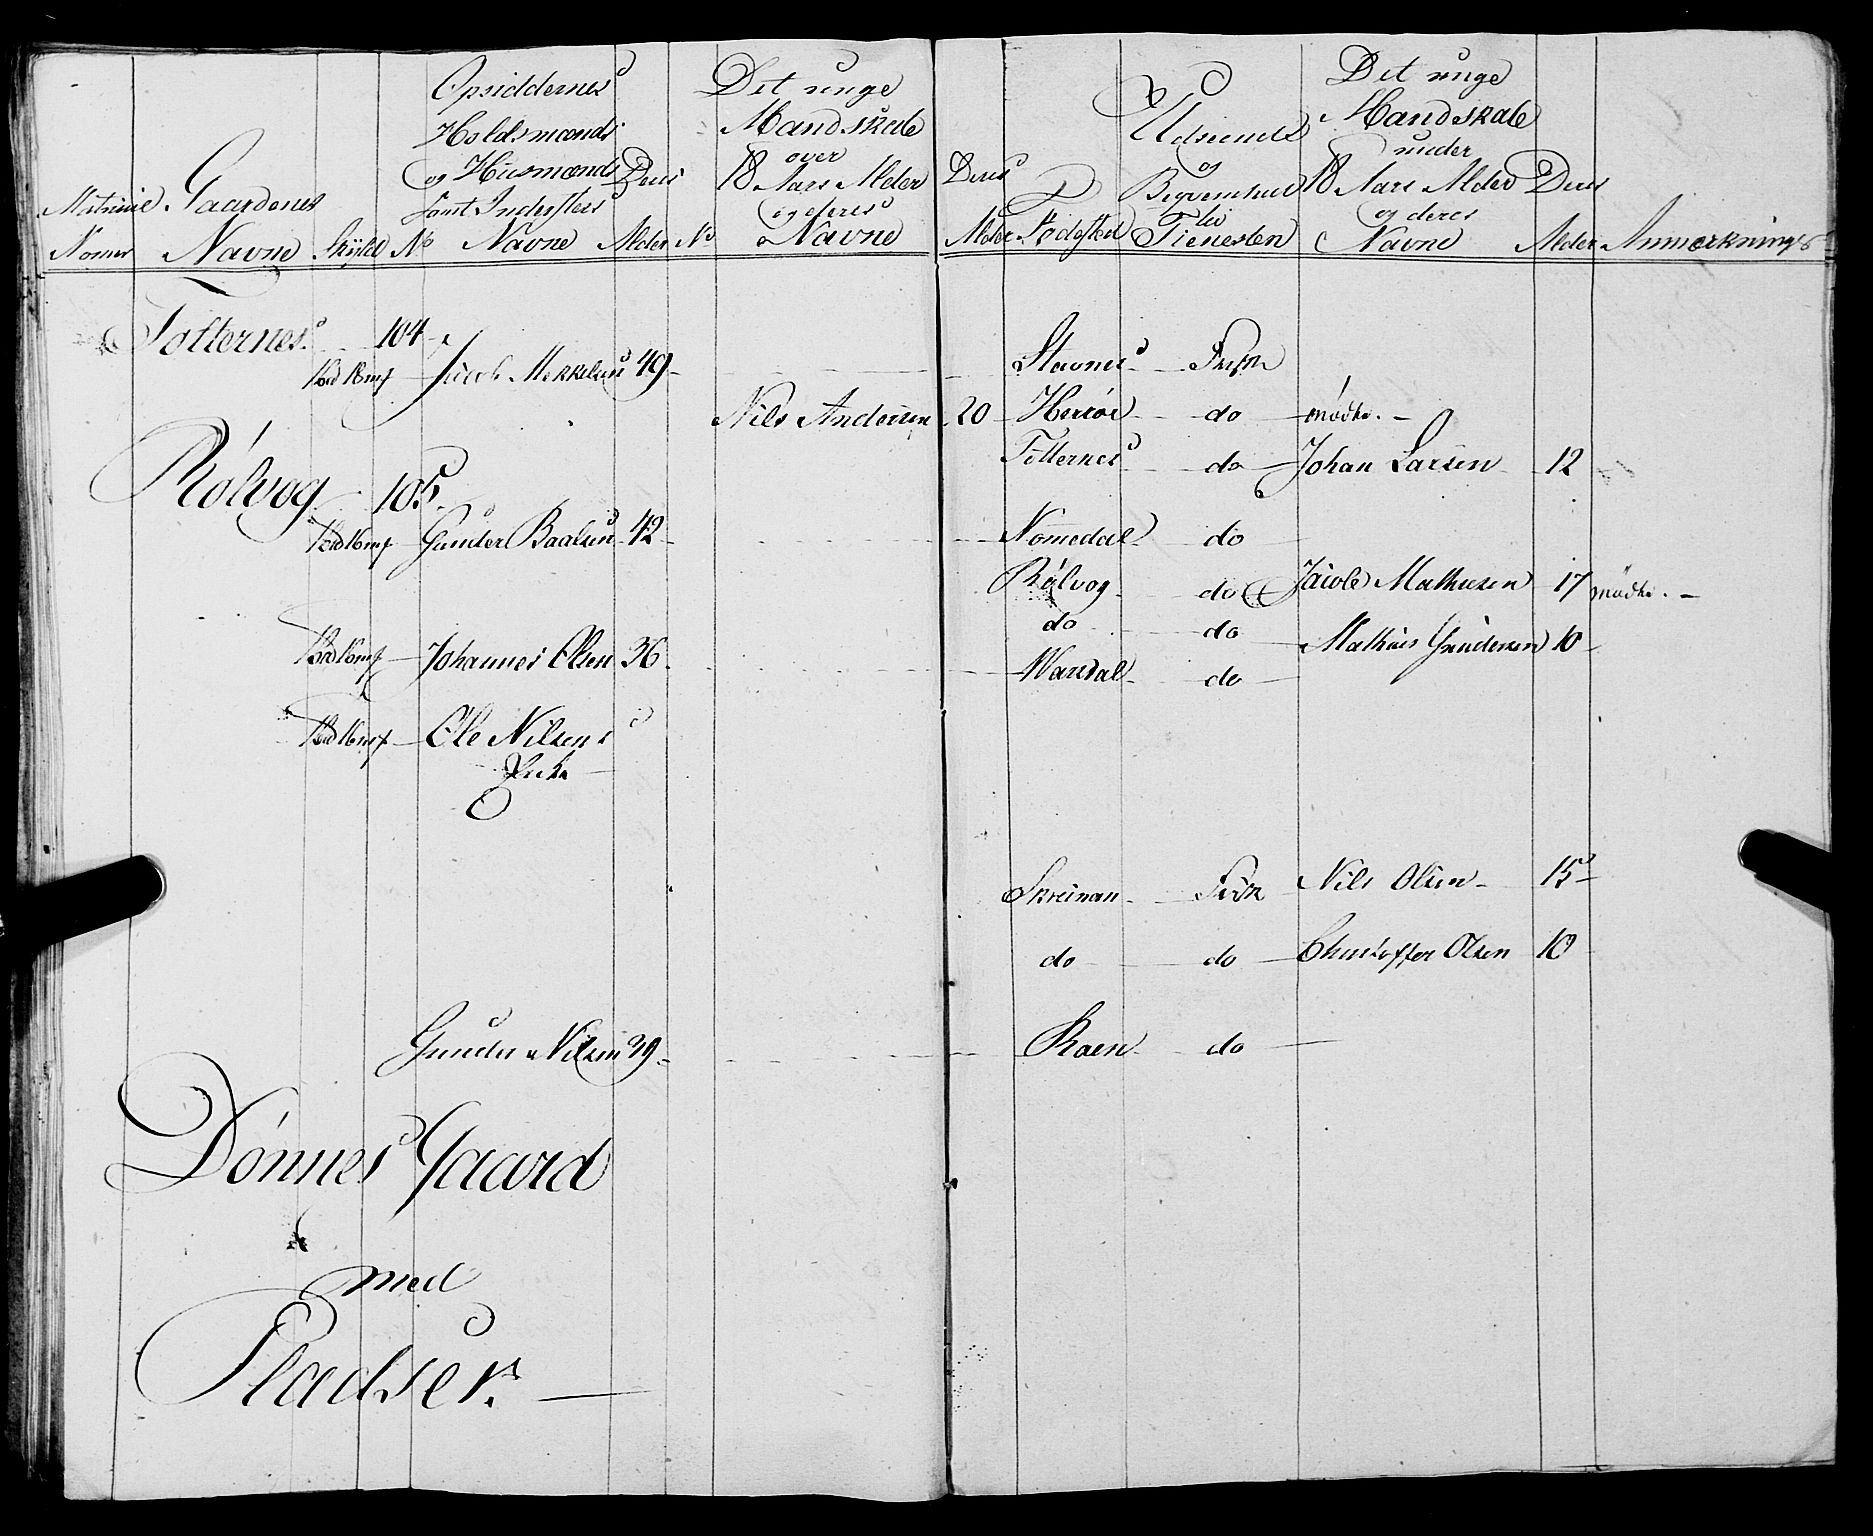 Matricul Nomer
Gaardenes Navne
Skyld
No
Opsiddernes
Holdsmænds
og Huusmænds
samt Inderster
Navne
Deres Alder
No
Det unge
Mandskab
over
18 Aars Alder
og deres
Navne
Deres Alder
Fødested
Udseende
og
Beqvemhed
til
Tienesten
Det unge
Mandskab
under
18 Aars Alder
og deres
Navne
Deres Alder
Anmærkninger
Totternes 104
Jacob Mekkelsen 49 Stavnes Frisk
Nils Andersen 20 Herrøe do mødte.
Totternes do Johan Larsen 12
Rølvog 105
Gunder Baalsen 42 Nommedal do
Rølvog do Jacob Mathisen 17 mødte.
do do Mathias Gundersen 10
Johannes Olsen 36 Wandal do
Ole Nilsens
Enke
Skreinan Frisk Nils Olsen 15
do do Christoffer Olsen 10
Gunder Nilsen 39 Roen do
Dønnes Gaard
med
Pladser.